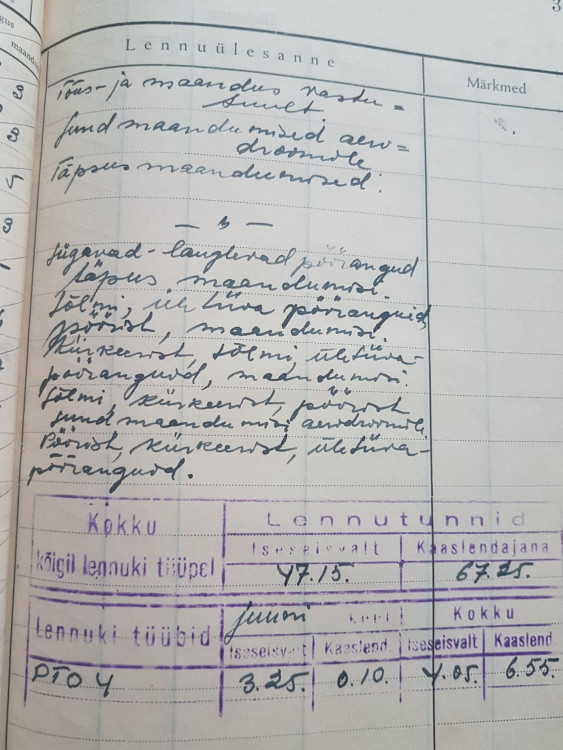 3
gus
maandu
Lennuülesanne
Märkmed
Tõus- ja maandus vastu=
tuult.
Sund maandumised aero=
droomile
Täpsus maandumised.
— " —
Sügavad- lauglevad pöörangud
täpsus maandumisi.
Sõlmi, ühtüva pööranguid,
pöörist, maandumisi.
Kürkeerist, sõlmi, ühtüva-
pööranguid, maandumisi.
Sõlmi, kürkeerist, pöörist
sund maandumisi aerodroomile.
Pöörist, kürkeerist, ühtüva-
pööranguid.
Kokku
kõigil lennuki tüüpel
Lennutunnid
Iseseisvalt
Kaaslendajana
47.15.
67.25.
Lennuki tüübid
Juuni
Kokku
Iseseisvalt
Kaaslend.
Iseseisvalt
Kaaslend
PTO 4
3.25.
0.10.
4.05.
6.55.